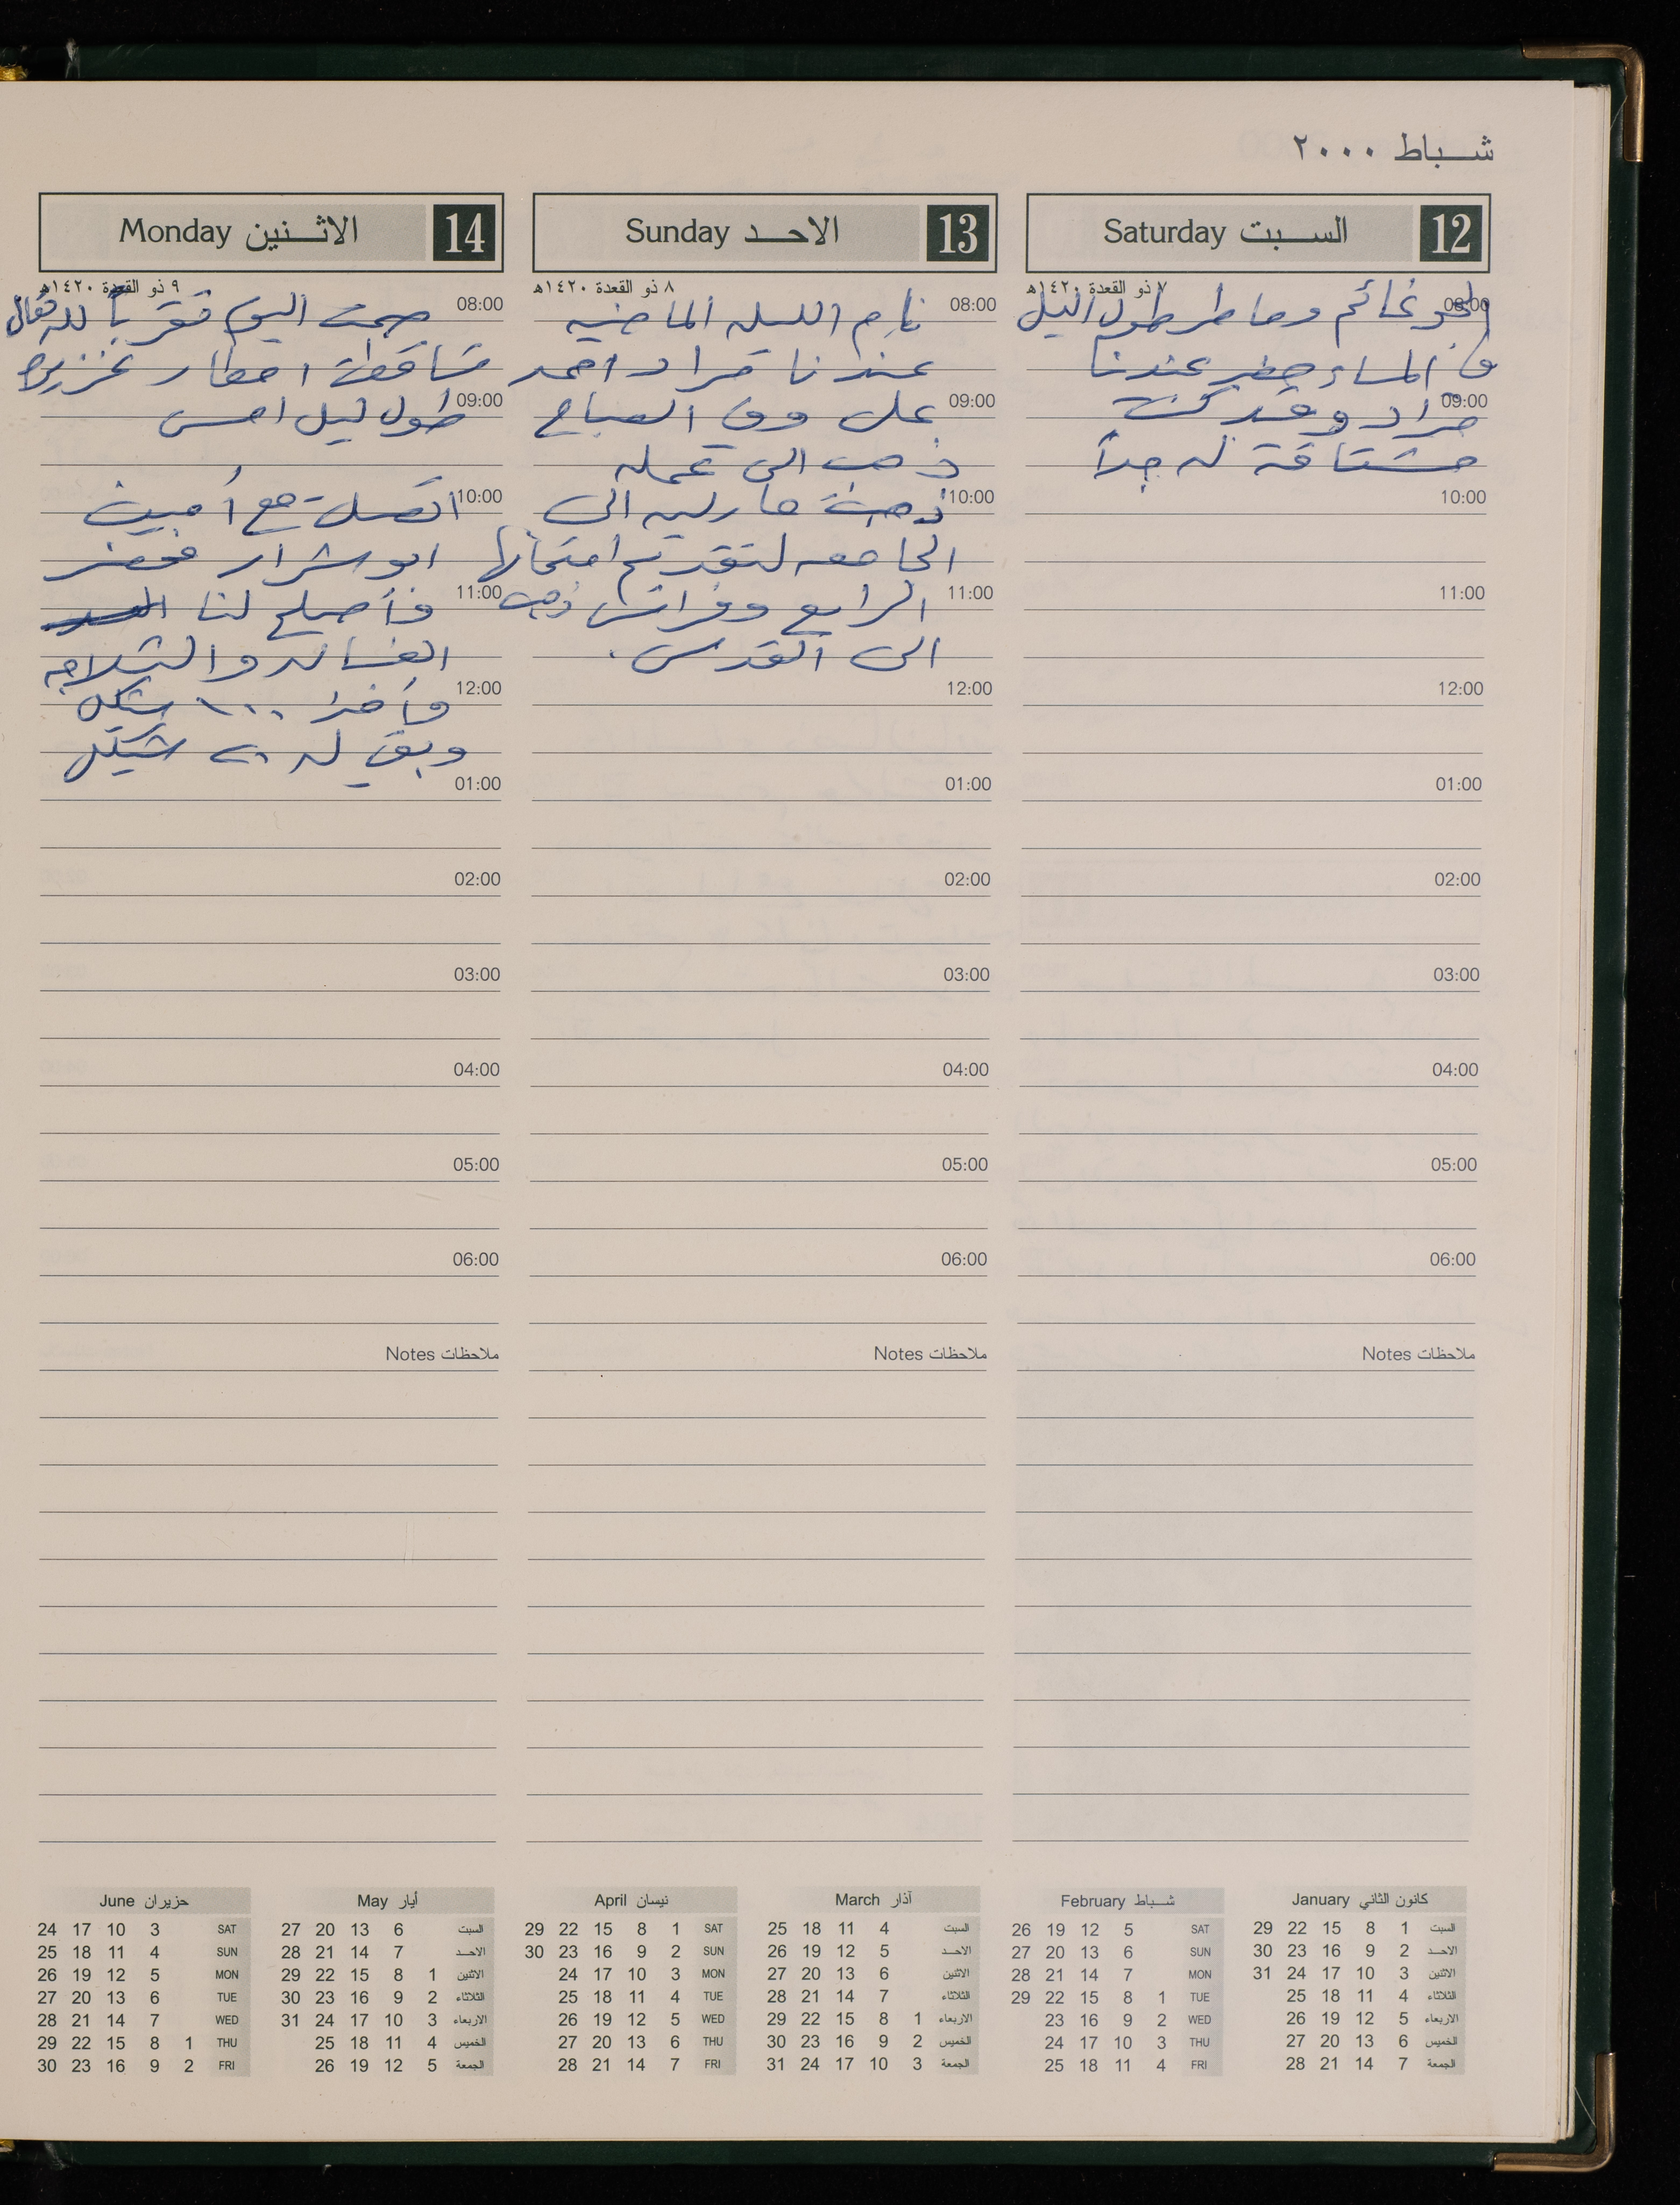 شباط ٢٠٠٠
12 السبت Saturday
٧ ذو القعدة ١٤٢٠هـ
الجو غائم وماطر طول اليل
08:00
وفي المساء حضر عندنا
مراد وقد كنت
09:00
مشتاقة له جداً
10:00
11:00
12:00
01:00
02:00
03:00
04:00
05:00
06:00
ملاحظات Notes
13 الاحد Sunday
٨ ذو القعدة ١٤٢٠هـ
08:00 نام الليله الماضيه
عندنا مراد احمد
09:00 علي وفي الصباح
ذهب الى عمله
10:00 ذهبت ماريه الى
الجامعه لتقديم امتحانها
11:00 الرابع وفراس ذهب
الى القدس.
12:00
01:00
02:00
03:00
04:00
05:00
06:00
ملاحظات Notes
14 الاثنين Monday
٩ ذو القعدة ١٤٢٠هـ
08:00 صمت اليوم تقرباً لله تعالى
تساقطت امطار غزيره
09:00 طول ليل امس
10:00 اتصلت مع أمين
ابو شرار فحضر
11:00 وأصلح لنا
الغساله والثلاجه
12:00 وأخذ ١٠٠ شيكل
وبقي له ٢٠ شيكل
01:00
02:00
03:00
04:00
05:00
06:00
ملاحظات Notes
كانون الثاني January
السبت 1 8 15 22 29
الاحد 2 9 16 23 30
الاثنين 3 10 17 24 31
الثلاثاء 4 11 18 25
الاربعاء 5 12 19 26
الخميس 6 13 20 27
الجمعة 7 14 21 28
شباط February
SAT 5 12 19 26
SUN 6 13 20 27
MON 7 14 21 28
TUE 1 8 15 22 29
WED 2 9 16 23
THU 3 10 17 24
FRI 4 11 18 25
آذار March
السبت 4 11 18 25
الاحد 5 12 19 26
الاثنين 6 13 20 27
الثلاثاء 7 14 21 28
الاربعاء 1 8 15 22 29
الخميس 2 9 16 23 30
الجمعة 3 10 17 24 31
نيسان April
SAT 1 8 15 22 29
SUN 2 9 16 23 30
MON 3 10 17 24
TUE 4 11 18 25
WED 5 12 19 26
THU 6 13 20 27
FRI 7 14 21 28
أيار May
السبت 6 13 20 27
الاحد 7 14 21 28
الاثنين 1 8 15 22 29
الثلاثاء 2 9 16 23 30
الاربعاء 3 10 17 24 31
الخميس 4 11 18 25
الجمعة 5 12 19 26
حزيران June
SAT 3 10 17 24
SUN 4 11 18 25
MON 5 12 19 26
TUE 6 13 20 27
WED 7 14 21 28
THU 1 8 15 22 29
FRI 2 9 16 23 30